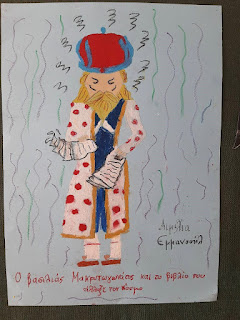 Αιμιλία
Εμμανουήλ
Ο βασιλιάς Μακρυπωγωνάτος και το βιβλίο που
άλλαξε τον κόσμο